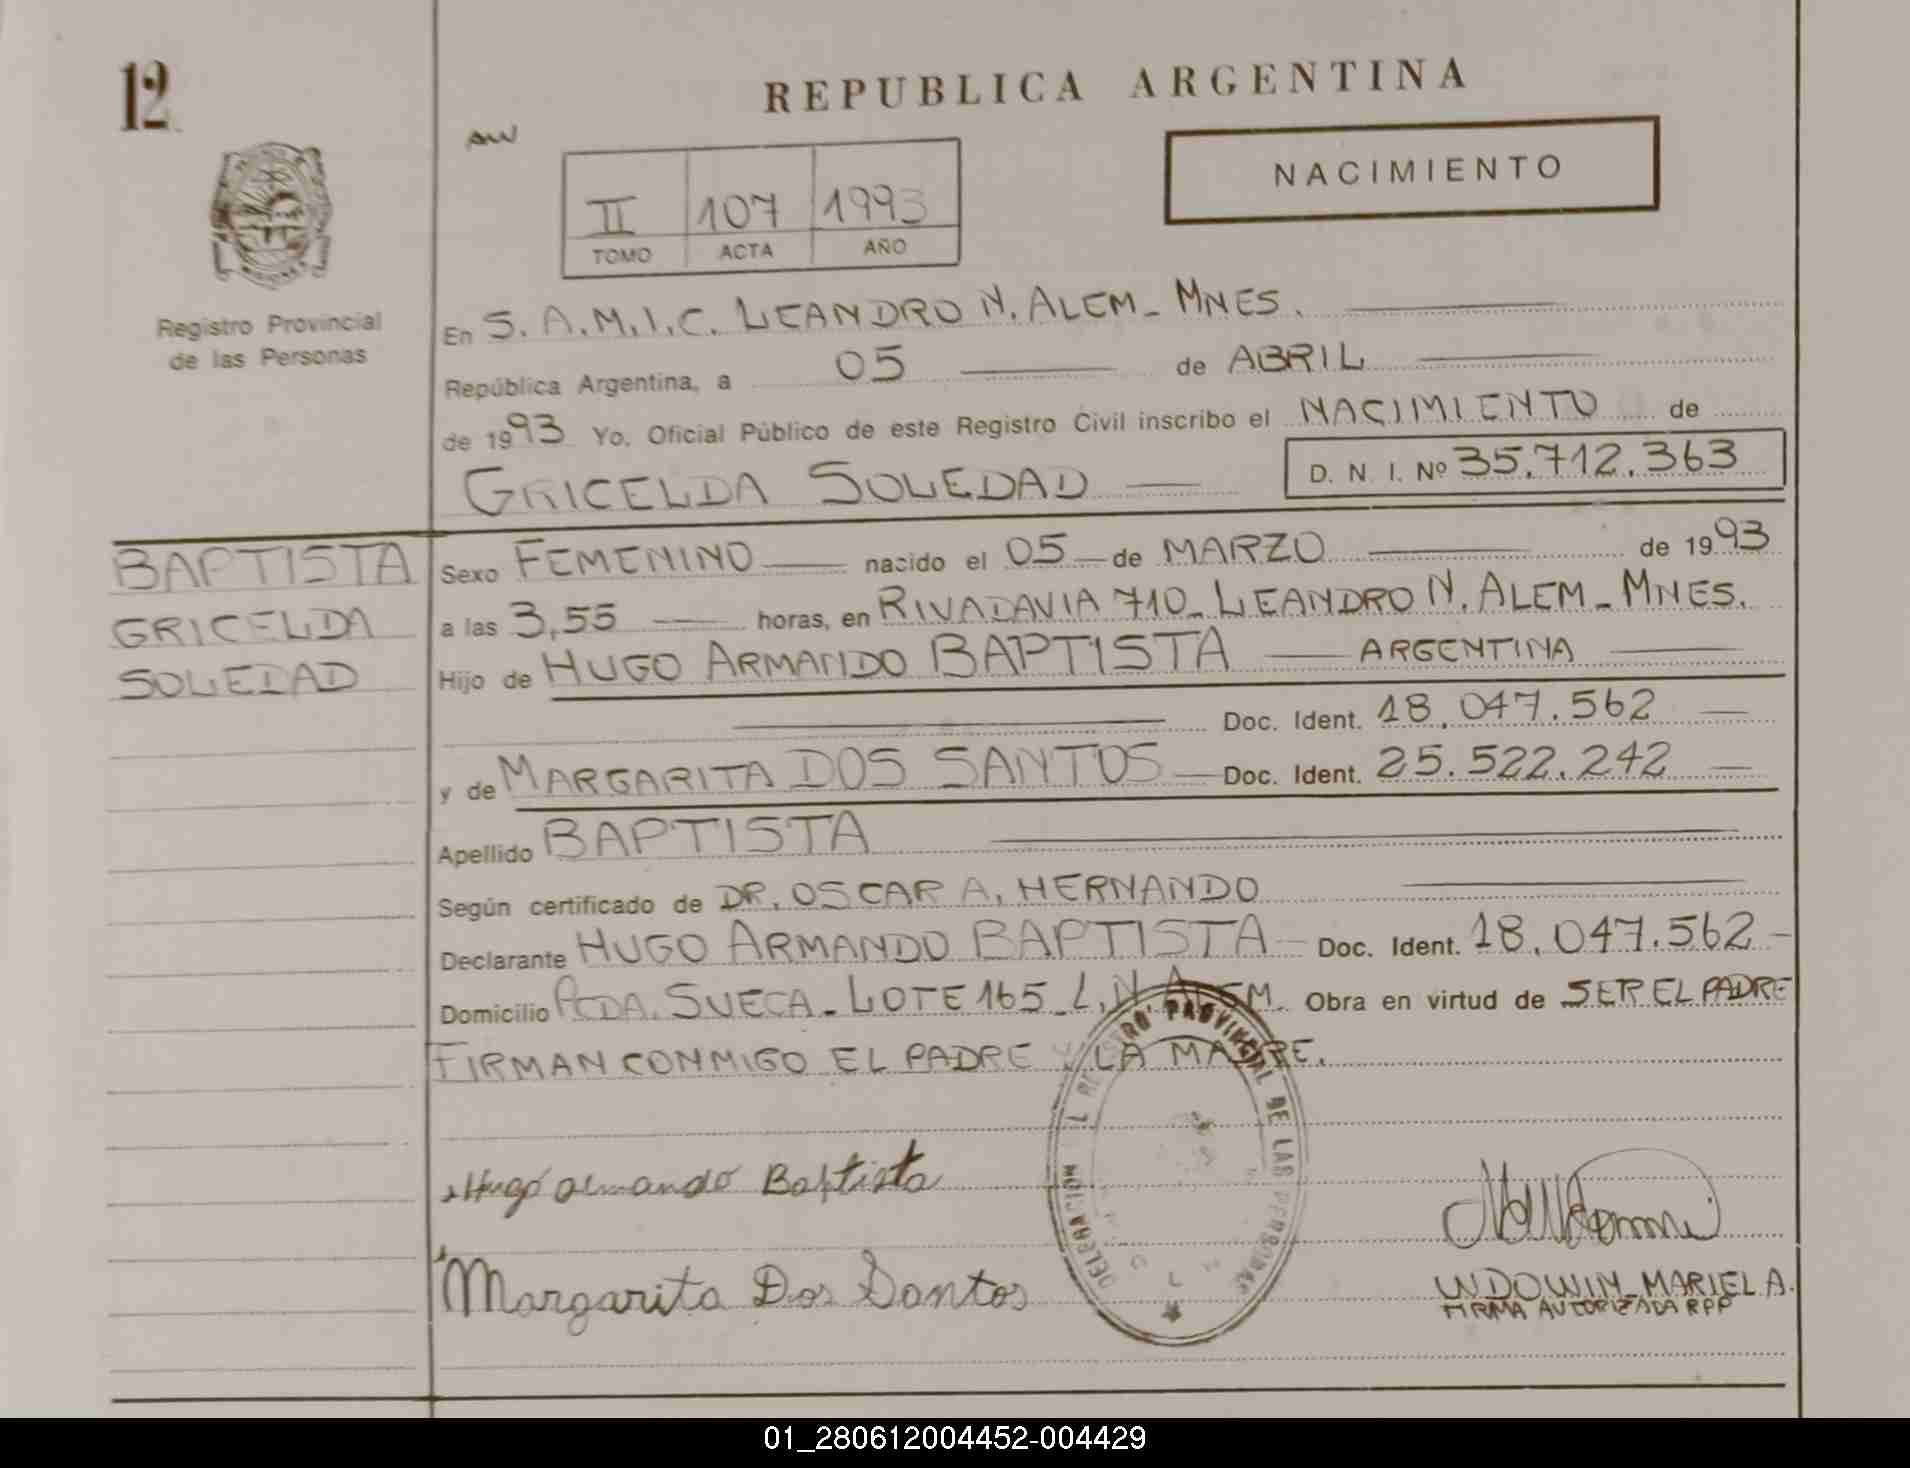 12
REPUBLICA ARGENTINA
NACIMIENTO
II 107 1993
TOMO ACTA AÑO
Registro Provincial
de las Personas
En S.A.M.I.C. LEANDRO N. ALEM - MNES.
República Argentina, a 05 de ABRIL
de 1993 Yo, Oficial Público de este Registro Civil inscribo el NACIMIENTO de
GRICELDA SOLEDAD D. N. I. Nº 35.712.363
BAPTISTA
GRICELDA
SOLEDAD
Sexo FEMENINO nacido el 05 de MARZO de 1993
a las 3,55 horas, en RIVADAVIA 710 - LEANDRO N. ALEM - MNES.
Hijo de HUGO ARMANDO BAPTISTA ARGENTINA
Doc. Ident. 18.047.562
y de MARGARITA DOS SANTOS Doc. Ident. 25.522.242
Apellido BAPTISTA
Según certificado de DR. OSCAR A. HERNANDO
Declarante HUGO ARMANDO BAPTISTA Doc. Ident. 18.047.562
Domicilio PCDA. SUECA - LOTE 165 - L.N. ALEM. Obra en virtud de SER EL PADRE
FIRMAN CONMIGO EL PADRE Y LA MADRE.
Hugo Armando Baptista
Margarita Dos Santos
REGISTRO PROVINCIAL DE LAS PERSONAS
MARIEL A.
FIRMA AUTORIZADA RPP
01_280612004452-004429